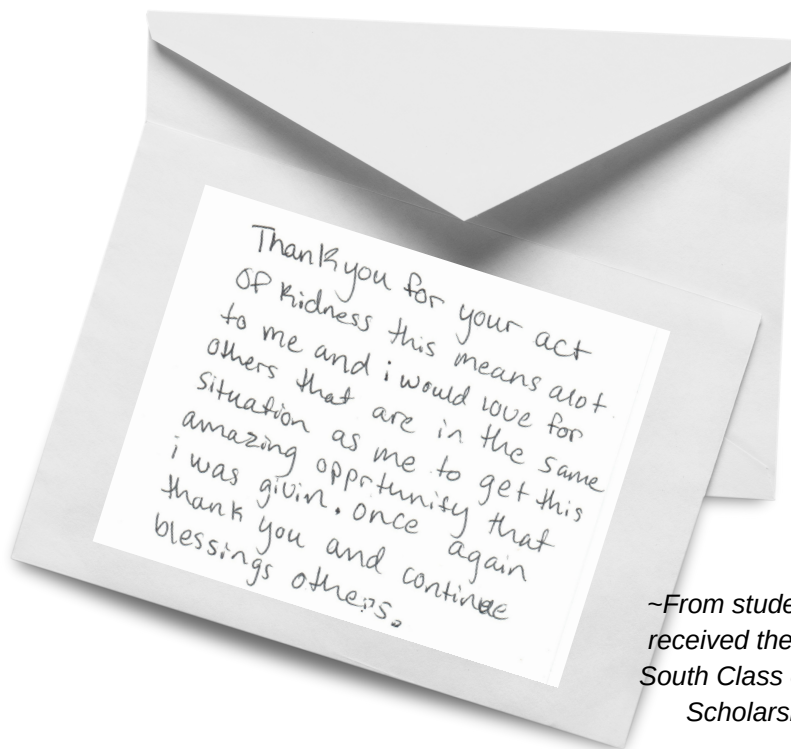 Thank you for your act
of kidness this means alot
to me and i would love for
others that are in the same
situation as me to get this
amazing opprtunity that
i was givin. once again
thank you and continue
blessings others.
~From stude
received the
South Class
Scholars